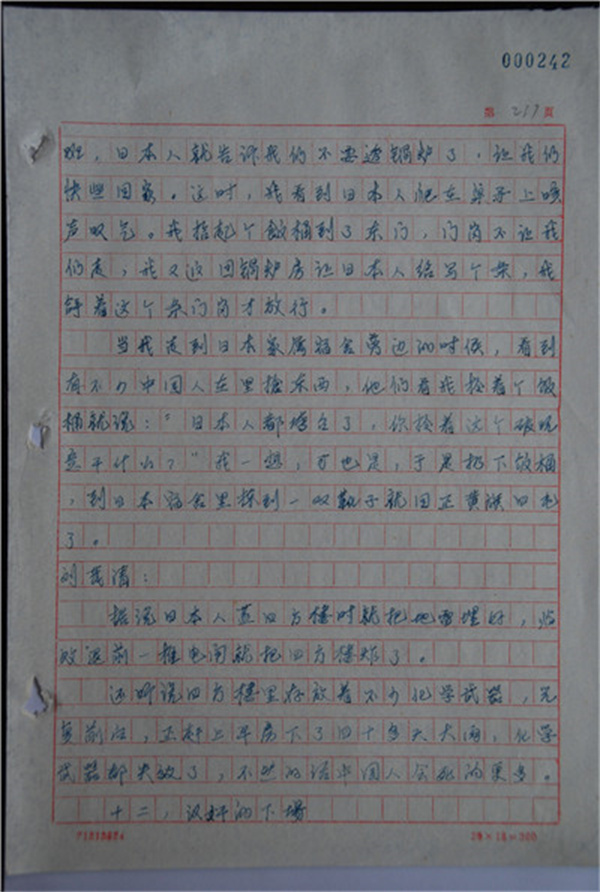 000242
第 217 页
班，日本人就告诉我们不要透锅炉了，让我们
快些回家。这时，我看到日本人爬在桌子上唉
声叹气。我拾起个饭桶到了东门，门岗不让我
们走，我又返回锅炉房让日本人给写个条，我
拿着这个条门岗才放行。
当我走到日本家属宿舍旁边的时候，看到
有不少中国人在里抢东西，他们看我拎着个饭
桶就说："日本人都垮台了，你拎着这个破玩
意干什么？"我一想，可也是，于是扔下饭桶
，到日本宿舍里抢到一双靴子就回正黄旗四屯
了。
刘
据说日本人盖四方楼时就把地雷埋好，临
败退前一推电闸就把四方楼炸了。
还听说四方楼里存放着不少化学武器，光
复前后，正赶上平房下了四十多天大雨，化学
武器都失效了，不然的话中国人会死的更多。
十二，汉奸的下场
20×15=300